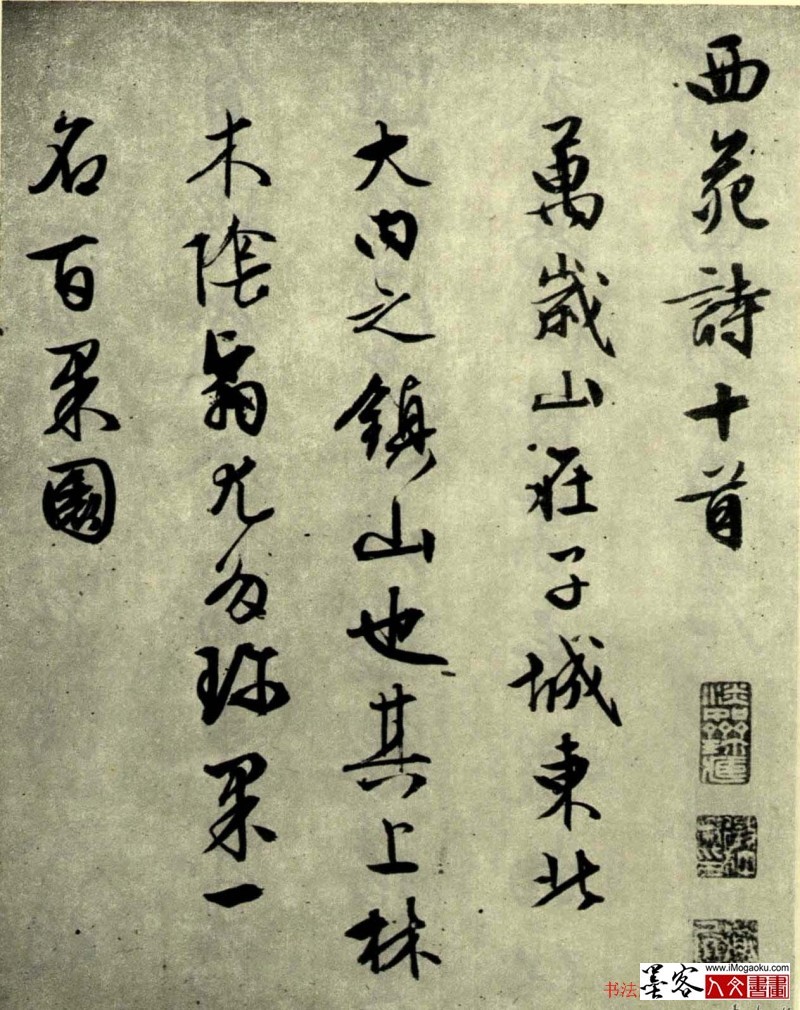 西苑詩十首
萬歲山在子城東北
大内之鎮山也其上林
木陰翳尤多珍果一
名百果園
书法
墨客
www.iMogaoku.com
人文書畫